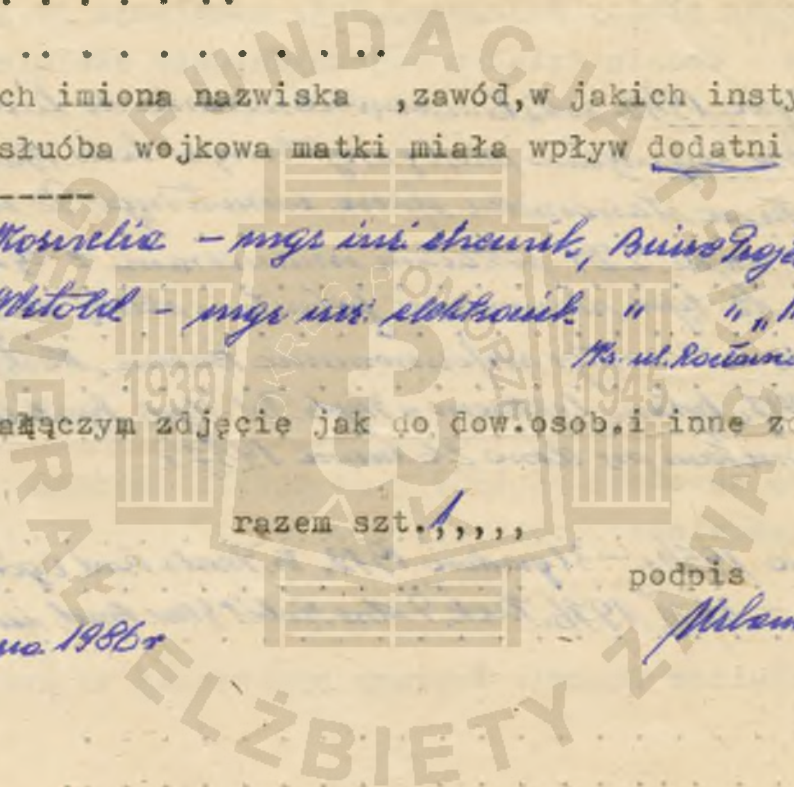 ch imiona nazwiska ,zawód,w jakich insty
słuóba wojkowa matki miała wpływ dodatni
-----
Kornelia - mgr inż chemik, Biuro Proje
Witold - mgr inż elektronik " " "
ul.
ałączym zdjęcie jak do dow.osob.i inne zd
razem szt.1,,,,
podpis
1986 r Urban
FUNDACJA GENERAŁ ELŻBIETY ZAWAC
OKRĘG POMORZE
1939 1945
AK